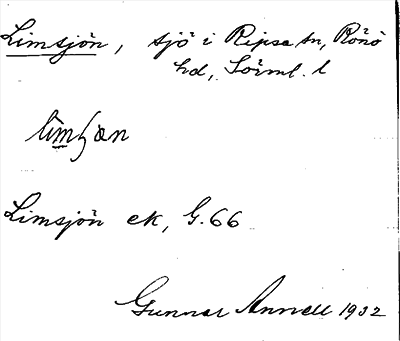 Limsjön, sjö i Ripsa sn, Rönö
hd, Sörml. l
Limsjön ek, G. 66
Gunnar Annell 1932